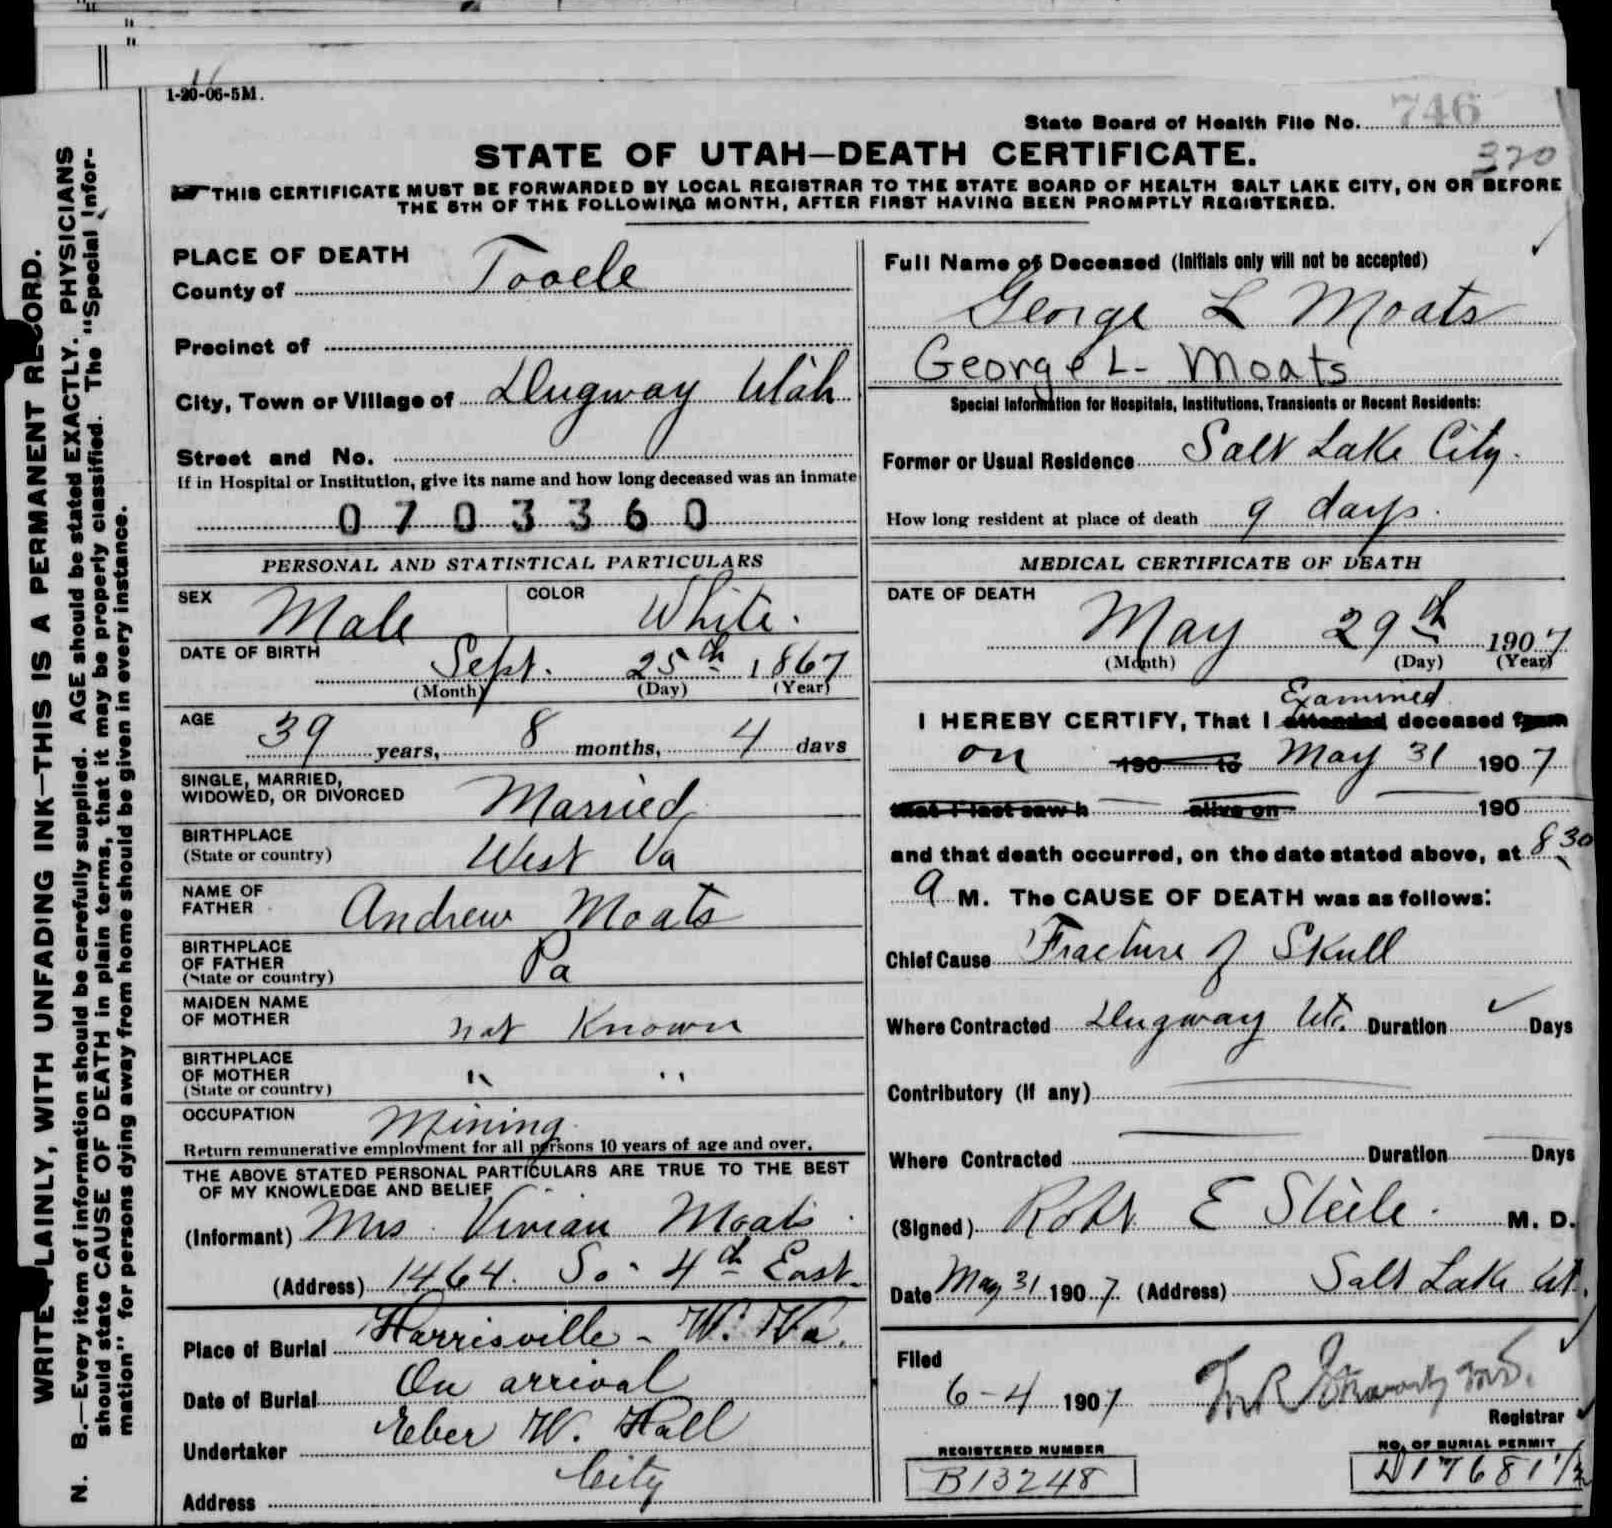 1-20-06-5M.
State Board of Health File No. 746
320
STATE OF UTAH—DEATH CERTIFICATE.
THIS CERTIFICATE MUST BE FORWARDED BY LOCAL REGISTRAR TO THE STATE BOARD OF HEALTH SALT LAKE CITY, ON OR BEFORE
THE 5TH OF THE FOLLOWING MONTH, AFTER FIRST HAVING BEEN PROMPTLY REGISTERED.
WRITE PLAINLY, WITH UNFADING INK—THIS IS A PERMANENT RECORD.
N. B.—Every item of information should be carefully supplied. AGE should be stated EXACTLY. PHYSICIANS
should state CAUSE OF DEATH in plain terms, that it may be properly classified. The "Special Infor-
mation" for persons dying away from home should be given in every instance.
PLACE OF DEATH
County of Tooele
Precinct of
City, Town or Village of Dugway Utah
Street and No.
If in Hospital or Institution, give its name and how long deceased was an inmate
0703360
PERSONAL AND STATISTICAL PARTICULARS
SEX Male COLOR White.
DATE OF BIRTH Sept. 25th 1867
(Month) (Day) (Year)
AGE 39 years, 8 months, 4 days
SINGLE, MARRIED,
WIDOWED, OR DIVORCED Married
BIRTHPLACE
(State or country) West Va
NAME OF
FATHER Andrew Moats
BIRTHPLACE
OF FATHER
(State or country) Pa
MAIDEN NAME
OF MOTHER not Known
BIRTHPLACE
OF MOTHER
(State or country) " "
OCCUPATION Mining
Return remunerative employment for all persons 10 years of age and over.
THE ABOVE STATED PERSONAL PARTICULARS ARE TRUE TO THE BEST
OF MY KNOWLEDGE AND BELIEF
(Informant) Mrs. Vivian Moats.
(Address) 1464. So. 4th East.
Place of Burial Harrisville - W. Va.
Date of Burial On arrival
Undertaker Eber W. Hall
Address City
Full Name of Deceased (Initials only will not be accepted)
George L Moats
George L- Moats
Special Information for Hospitals, Institutions, Transients or Recent Residents:
Former or Usual Residence Salt Lake City.
How long resident at place of death 9 days.
MEDICAL CERTIFICATE OF DEATH
DATE OF DEATH
May 29th 1907
(Month) (Day) (Year)
Examined
I HEREBY CERTIFY, That I attended deceased from
on 190 to May 31 1907
that I last saw h alive on 190
and that death occurred, on the date stated above, at 8 30
a M. The CAUSE OF DEATH was as follows:
Chief Cause Fracture of Skull
Where Contracted Dugway Ut. Duration Days
Contributory (if any)
Where Contracted Duration Days
(Signed) Robt E Steele. M. D.
Date May 31 1907. (Address) Salt Lake Ut.
Filed
6-4 1907
Registrar
REGISTERED NUMBER
B13248
NO. OF BURIAL PERMIT
D17681 1/2